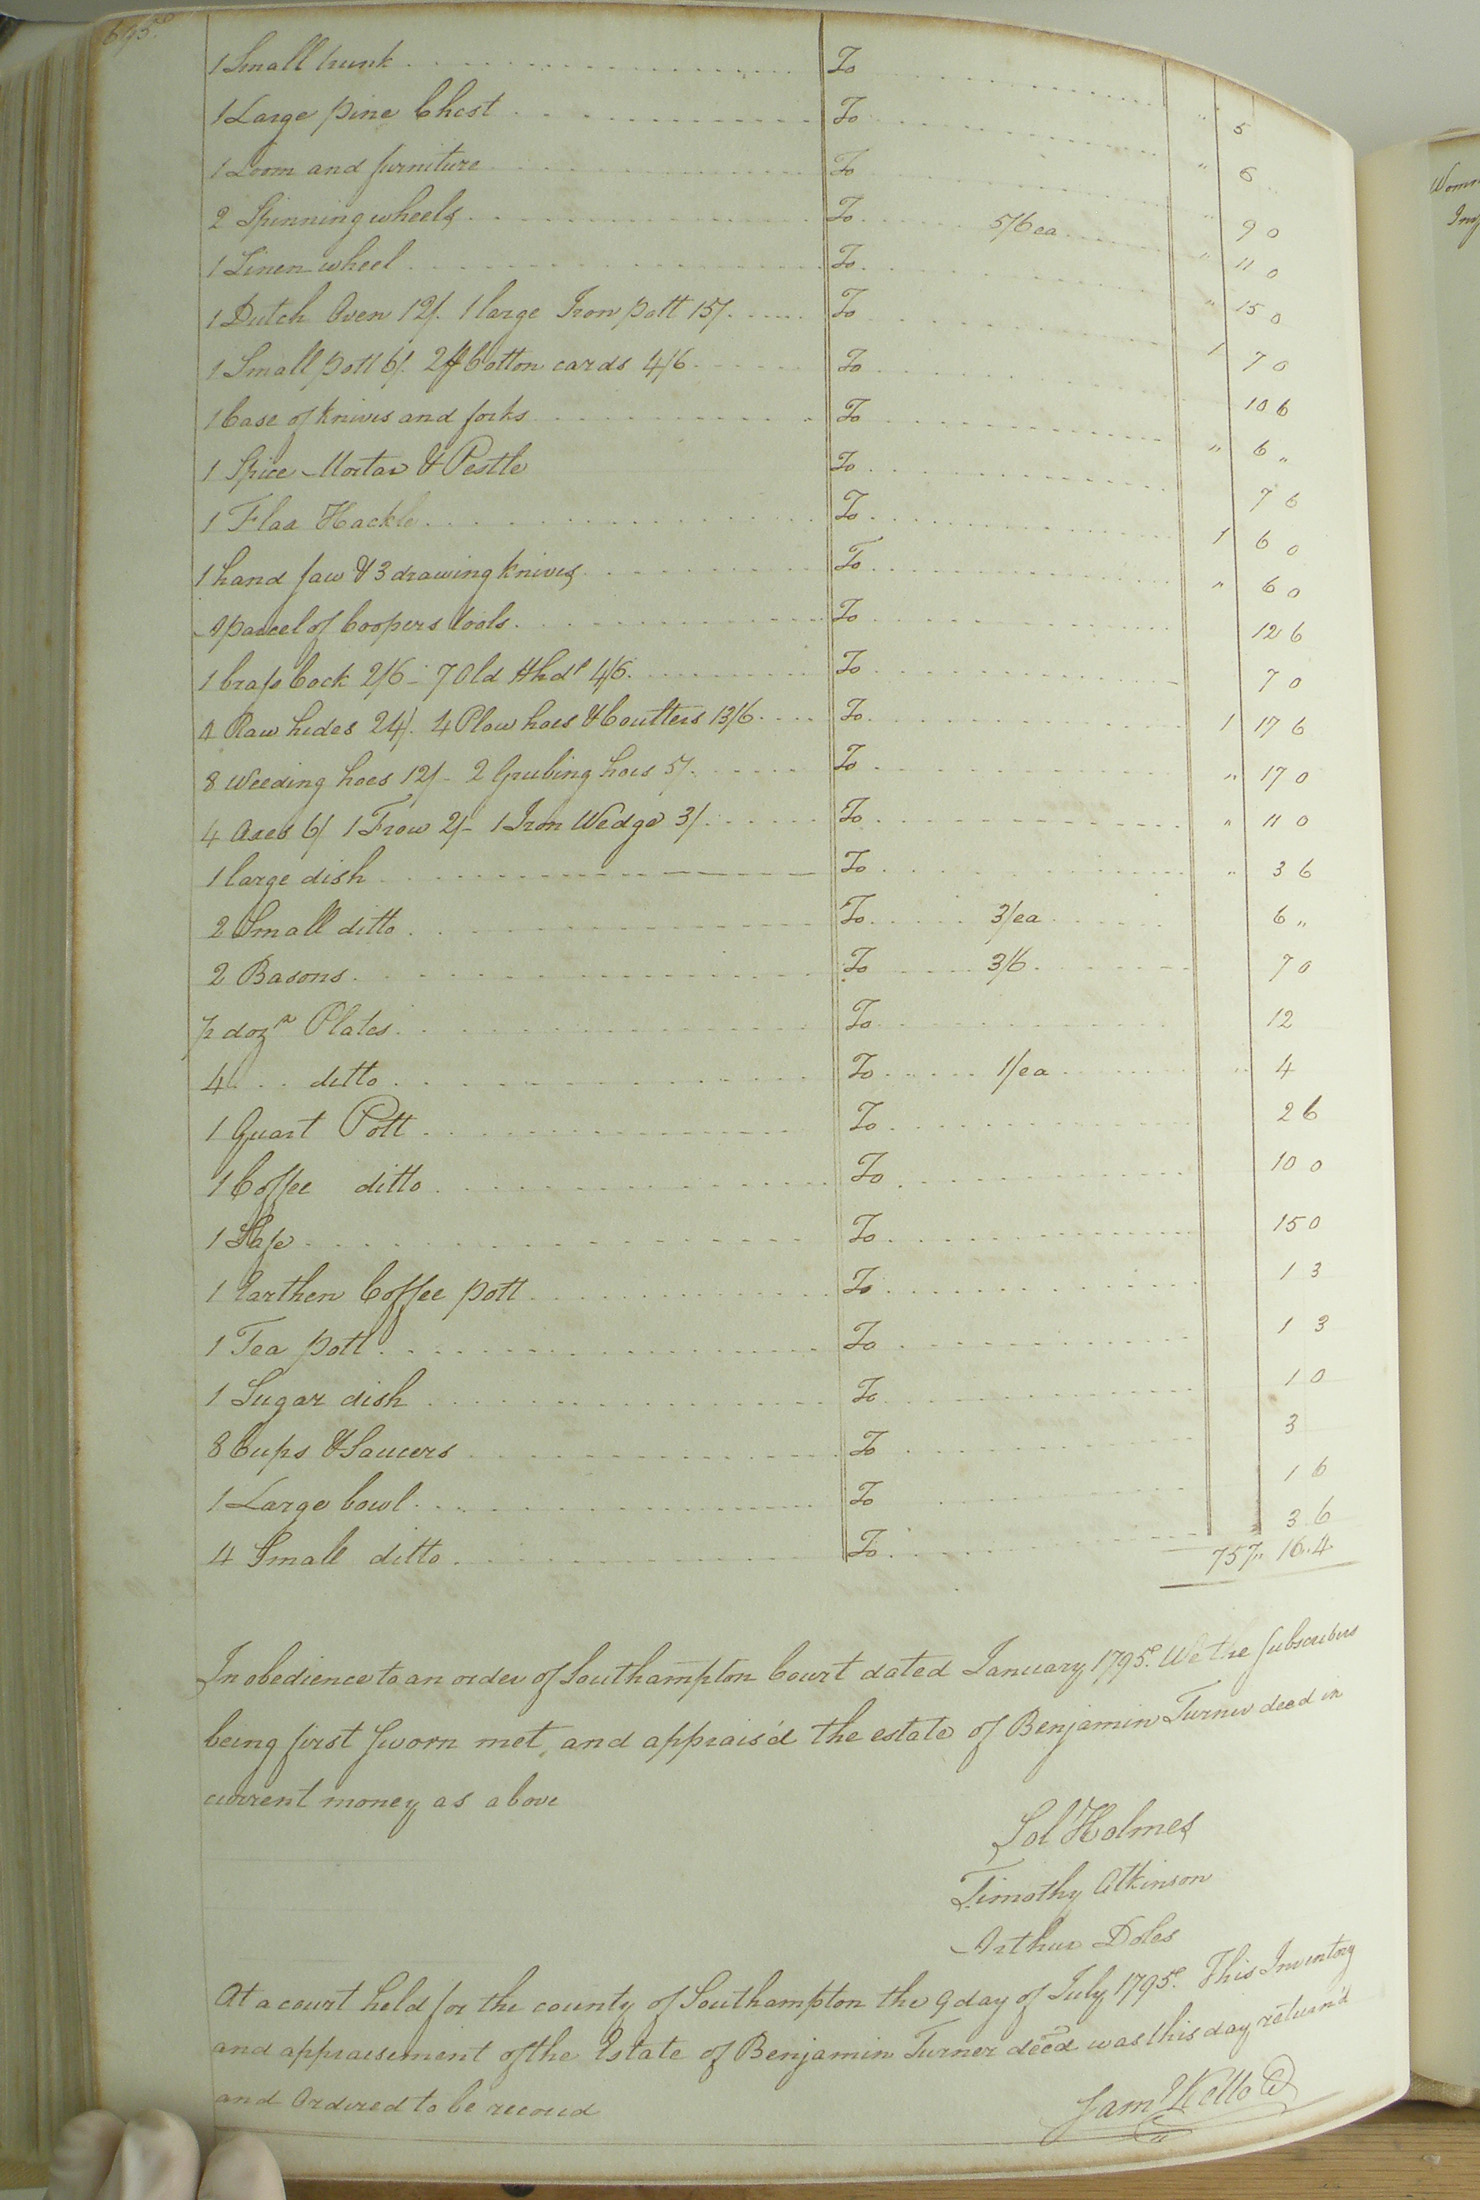 1 Small trunk To " 5
1 Large pine Chest To " 6
1 Loom and furniture To " 9 0
2 Spinning wheels To 5/6 ea " 11 0
1 Linen wheel To " 15 0
1 Dutch Oven 12/. 1 large Iron pott 15/. To 1 7 0
1 Small pott 6/. 2 Cotton cards 4/6 To 10 6
1 Case of knives and forks To " 6 "
1 Spice Mortar & Pestle To 7 6
1 Flax Hackle To 1 6 0
1 hand saw & 3 drawing knives To " 6 0
A parcel of Coopers tools To 12 6
1 brass Cock 2/6 - 7 Old Hhds 4/6 To 7 0
4 Raw hides 24/. 4 Plow hoes & Coulters 13/6 To 1 17 6
8 Weeding hoes 12/- 2 Grubing hoes 5/. To " 17 0
4 Axes 6/ 1 Frow 2/- 1 Iron Wedge 3/. To " 11 0
1 large dish To " 3 6
2 Small ditto To 3/ea 6 "
2 Basons To 3/6 7 0
½ dozn Plates To 12
4 ditto To 1/ea " 4
1 Quart Pott To 2 6
1 Coffee ditto To 10 0
1 Safe To 15 0
1 Earthen Coffee pott To 1 3
1 Tea pott To 1 3
1 Sugar dish To 1 0
8 Cups & Saucers To 3
1 Large bowl To 1 6
4 Small ditto To 3 6
757 " 16 .. 4
In obedience to an order of Southampton Court dated January 1795. We the subscribers
being first sworn met, and apprais'd the estate of Benjamin Turner deced in
current money as above
Sol Holmes
Timothy Atkinson
Arthur Doles
At a court held for the county of Southampton the 9 day of July 1795. This Inventory
and appraisement of the Estate of Benjamin Turner deced was this day return'd
and Ordered to be record
Saml Kello C